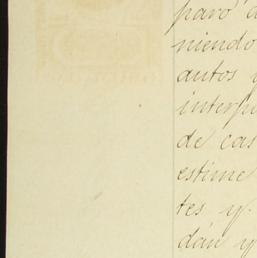 paró a
niendo
autos y
interpu
de cas
estime
tes y
dán y